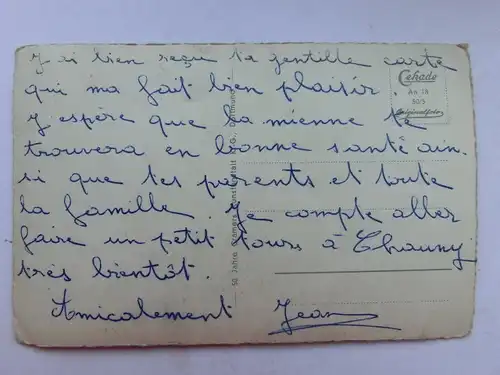 J'ai bien reçu ta gentille carte
qui ma fait bien plaisir.
J'espère que la mienne te
trouvera en bonne santé ain-
si que tes parents et toute
la famille. Je compte aller
faire un petit tours à Chauny
très bientôt.
Amicalement Jean
Cekade
An 18
30/5
Originalfoto
50 Jahre Cramers Kunstanstalt K.G., Dortmund